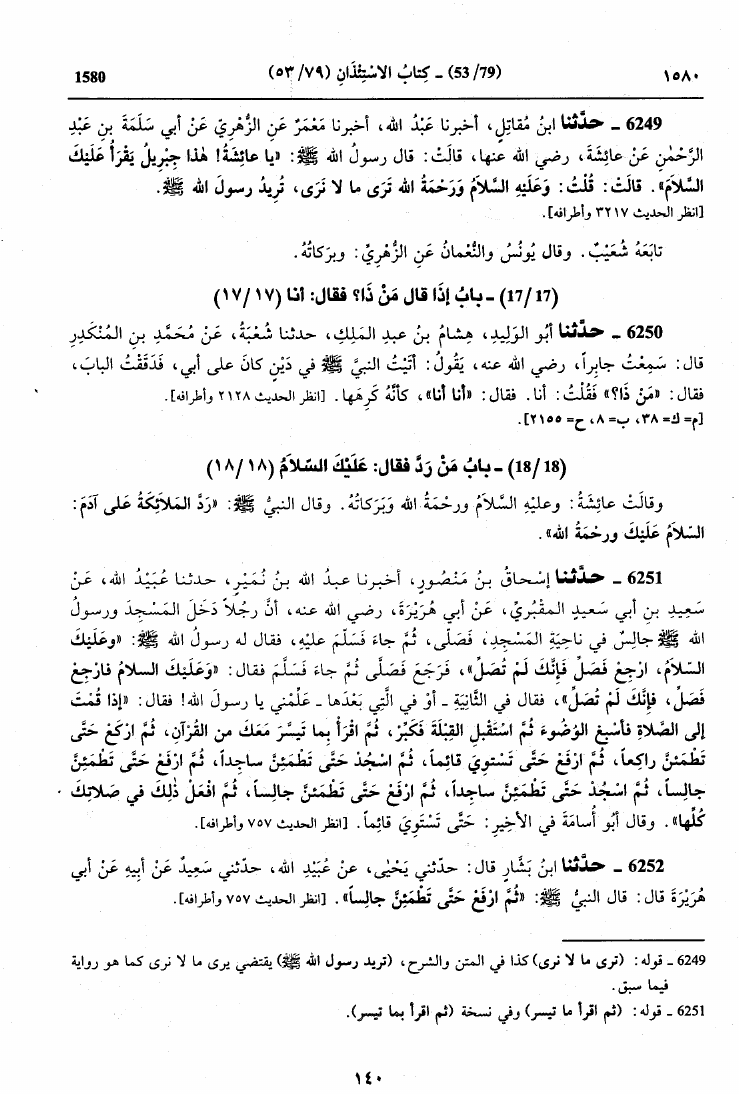 ١٥٨٠ (53/79) ـ كِتَابُ الاسْتِئْذَانِ (٥٣/٧٩) 1580
6249 ـ حدَّثنا ابنُ مُقاتِلٍ، أخبرنا عَبْدُ الله، أخبرنا مَعْمَرٌ عَنِ الزُّهْرِيِّ عَنْ أبي سَلَمَةَ بنِ عَبْدِ
الرَّحْمٰنِ عَنْ عائِشَةَ، رضي الله عنها، قالَتْ: قال رسولُ الله ﷺ: «يا عائِشَةُ! هٰذا جِبْرِيلُ يَقْرَأُ عَلَيْكِ
السَّلاَمَ». قالَتْ: قُلْتُ: وَعَلَيْهِ السَّلاَمُ وَرَحْمَةُ الله تَرَى ما لا نَرَى، تُرِيدُ رسولَ الله ﷺ.
[انظر الحديث ٣٢١٧ وأطرافه].
تابَعَهُ شُعَيْبٌ. وقال يُونُسُ والنُّعْمانُ عَنِ الزُّهْرِيِّ: وبرَكاتُهُ.
(17/17) ـ بابُ إذَا قال مَنْ ذَا؟ فقال: أنا (١٧/١٧)
6250 ـ حدَّثنا أبُو الوَلِيدِ، هِشامُ بنُ عبدِ المَلِكِ، حدثنا شُعْبَةُ، عَنْ مُحَمَّدِ بنِ المُنْكَدِرِ
قال: سَمِعْتُ جابِراً، رضي الله عنه، يَقُولُ: أتَيْتُ النبيَّ ﷺ في دَيْنٍ كانَ على أبي، فَدَقَقْتُ البابَ،
فقال: «مَنْ ذَا؟» فَقُلْتُ: أنا. فقال: «أنا أنا»، كأنَّهُ كَرِهَها. [انظر الحديث ٢١٢٨ وأطرافه].
[م= ك= ٣٨، ب= ٨، ح= ٢١٥٥].
(18/18) ـ بابُ مَنْ رَدَّ فقال: عَلَيْكَ السَّلاَمُ (١٨/١٨)
وقالَتْ عائِشَةُ: وعليْهِ السَّلاَمُ ورحْمةُ الله وَبَرَكاتُهُ. وقال النبيُّ ﷺ: «رَدَّ المَلائِكَةُ على آدَمَ:
السَّلاَمُ عَلَيْكَ ورحْمَةُ الله».
6251 ـ حدَّثنا إسْحاقُ بنُ مَنْصُورٍ، أخبرنا عبدُ الله بنُ نُمَيْرٍ، حدثنا عُبَيْدُ الله، عَنْ
سَعِيدِ بنِ أبي سَعِيدٍ المَقْبُرِيِّ، عَنْ أبي هُرَيْرَةَ، رضي الله عنه، أنَّ رجُلاً دَخَلَ المَسْجِدَ ورسولُ
الله ﷺ جالِسٌ في ناحِيَةِ المَسْجِدِ، فَصَلَّى، ثُمَّ جاءَ فَسَلَّمَ عليْهِ، فقال له رسولُ الله ﷺ: «وعَلَيْكَ
السَّلاَمُ، ارْجِعْ فَصَلِّ فَإنَّكَ لَمْ تُصَلِّ»، فَرَجَعَ فَصَلَّى ثُمَّ جاءَ فَسَلَّمَ فقال: «وَعَلَيْكَ السلامُ فارْجِعْ
فَصَلِّ، فإنَّكَ لَمْ تُصَلِّ»، فقال في الثَّانِيَةِ ـ أوْ في الَّتِي بَعْدَها ـ عَلِّمْني يا رسولَ الله! فقال: «إذا قُمْتَ
إلى الصَّلاةِ فأسْبِغِ الوُضُوءَ ثُمَّ اسْتَقْبِلِ القِبْلَةَ فَكَبِّرْ، ثُمَّ اقْرَأْ بِما تَيَسَّرَ مَعَكَ مِنَ القُرْآنِ، ثُمَّ ارْكَعْ حَتَّى
تَطْمَئِنَّ راكِعاً، ثُمَّ ارْفَعْ حَتَّى تَسْتوِيَ قائِماً، ثُمَّ اسْجُدْ حَتَّى تَطْمَئِنَّ ساجِداً، ثُمَّ ارْفَعْ حَتَّى تَطْمَئِنَّ
جالِساً، ثُمَّ اسْجُدْ حَتَّى تَطْمَئِنَّ ساجِداً، ثُمَّ ارْفَعْ حَتَّى تَطْمَئِنَّ جالِساً، ثُمَّ افْعَلْ ذٰلِكَ في صَلاتِكَ
كُلِّها». وقال أبُو أُسامَةَ في الأخِيرِ: حَتَّى تَسْتَوِيَ قائِماً. [انظر الحديث ٧٥٧ وأطرافه].
6252 ـ حدَّثنا ابنُ بَشَّارٍ قال: حدّثني يَحْيٰى، عنْ عُبَيْدِ الله، حدّثني سَعِيدٌ عَنْ أبِيهِ عَنْ أبي
هُرَيْرَةَ قال: قال النبيُّ ﷺ: «ثُمَّ ارْفَعْ حَتَّى تَطْمَئِنَّ جالِساً». [انظر الحديث ٧٥٧ وأطرافه].
6249 ـ قوله: (ترى ما لا نرى) كذا في المتن والشرح، (تريد رسول الله ﷺ) يقتضي يرى ما لا نرى كما هو رواية
فيما سبق.
6251 ـ قوله: (ثم اقرأ ما تيسر) وفي نسخة (ثم اقرأ بما تيسر).
١٤٠